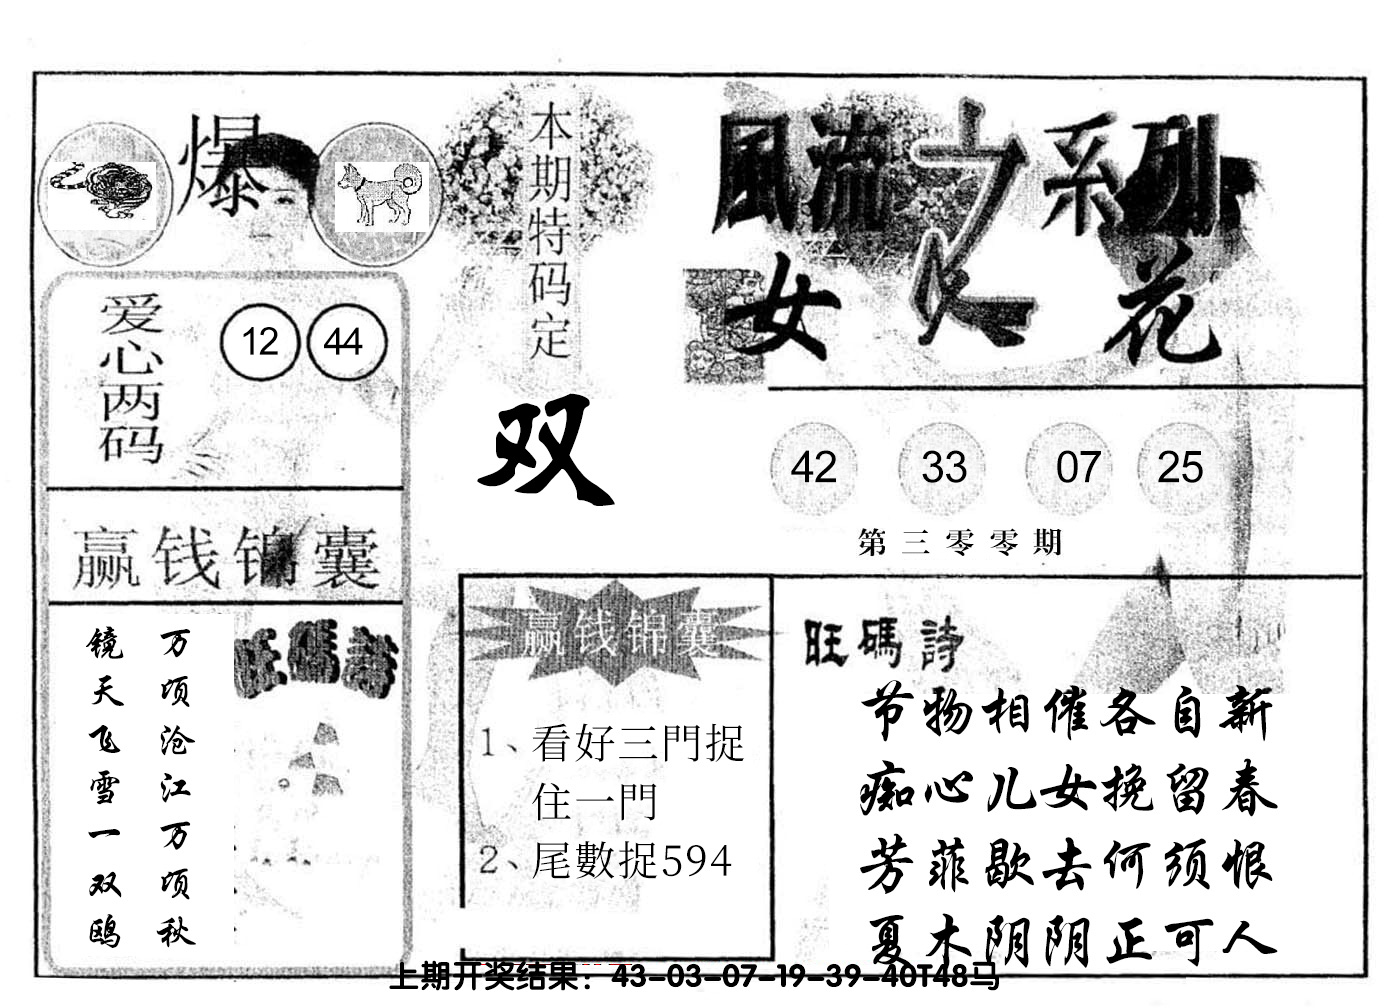 爆
本期特码定
双
風流之系列
女人花
爱心两码
12 44
42 33 07 25
第三零零期
赢钱锦囊
万顷沧江万顷秋
镜天飞雪一双鸥
旺碼詩
赢钱锦囊
1、看好三門捉
住一門
2、尾數捉594
旺碼詩
节物相催各自新
痴心儿女挽留春
芳菲歇去何须恨
夏木阴阴正可人
上期开奖结果：43-03-07-19-39-40T48马